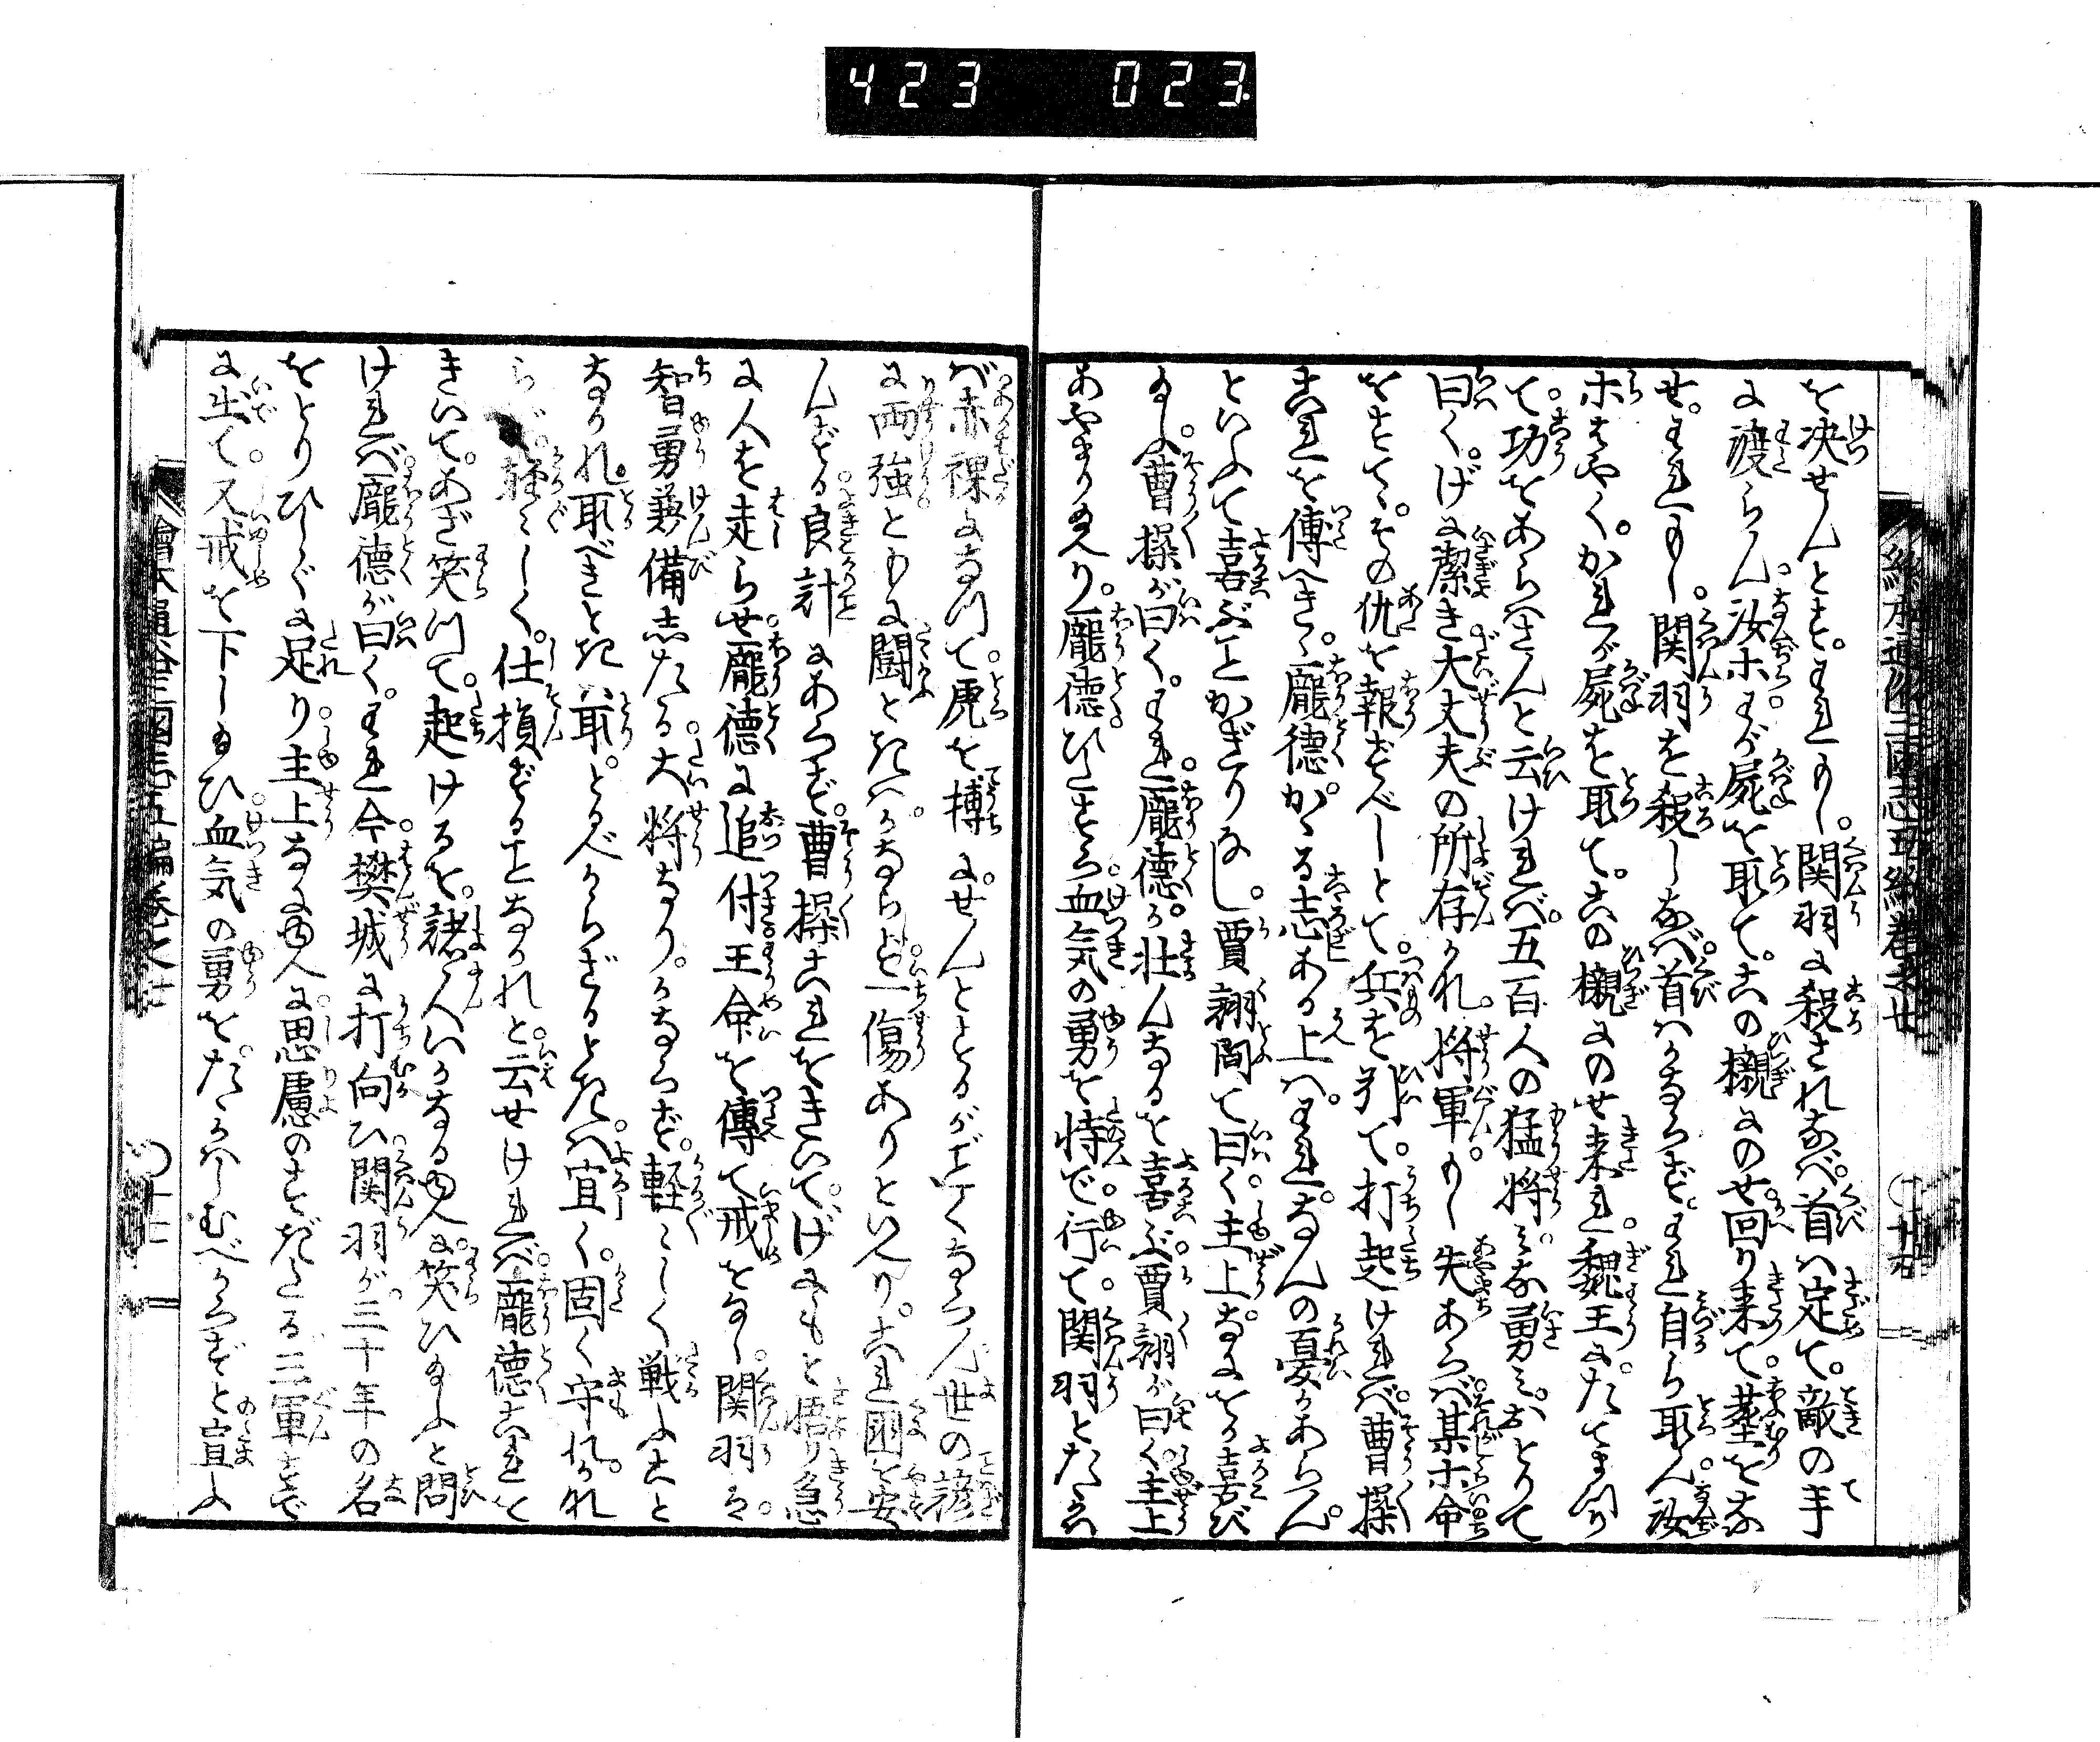 423 023
を決せんとす。われもし。関羽に殺されなば。首は定て。敵の手
に渡らん。汝ホわが屍を取て。この櫬にのせ回り来て。墓をな
せ。われもし。関羽を殺しなば。首はかならず。われ自ら取ん。汝
ホはやく。かれが屍を取て。この櫬にのせ来れ。魏王にたてまつり
て。功をあらはさんと云ければ。五百人の猛将。みな勇み。おどりて
曰く。げに潔き大丈夫の所存かれ。将軍。もし失あらば。某ホ命
をすてゝ。その仇を報ずべしとて。兵を引て。打起ければ。曹操
これを傳へきゝ。龐徳かゝる志ある上は。われ。なんの憂かあらん。
といふて喜ぶ𪜈かぎりなし。賈詡聞て曰く。主上。なにをか喜び
あふ。曹操が曰く。われ。龐徳が壮んなるを喜ぶ。賈詡が曰く。主上
あやまり給へり。龐徳。ひとすら血気の勇を恃で。行て。関羽とたゝかはゞ
ば。赤裸になつて。虎を搏にせんとするが𪜈くならん。世の諺
に両強ともに闘ときは。かならず一傷ありといへり。これ国を安
んずる良計にあらず。曹操これをきいて。げにもと悟り急
に人を走らせ。龐徳に追付。王命を傳て戒をなし。関羽は。
智勇兼備したる大将なり。かならず。軽〻しく戦ふこと
なかれ。取べきときは取。とるべからざるときは。宜く。固く守れ。かれ
らず。軽〻しく。仕損ずる𪜈なかれと。云せければ。龐徳これを
きいて。あざ笑つて。起けるを。諸人いかなる由に。笑ひ給ふと問
ければ。龐徳が曰く。われ今。樊城に打向ひ。関羽が。三十年の名
をとりひしぐに足り。主上なに由に。思慮のすぎたる三軍すで
に出て。又戒を下し給ひ。血気の勇を。たゝかはしむべからずと宣ふ
繪本通俗三國志五編巻之廿